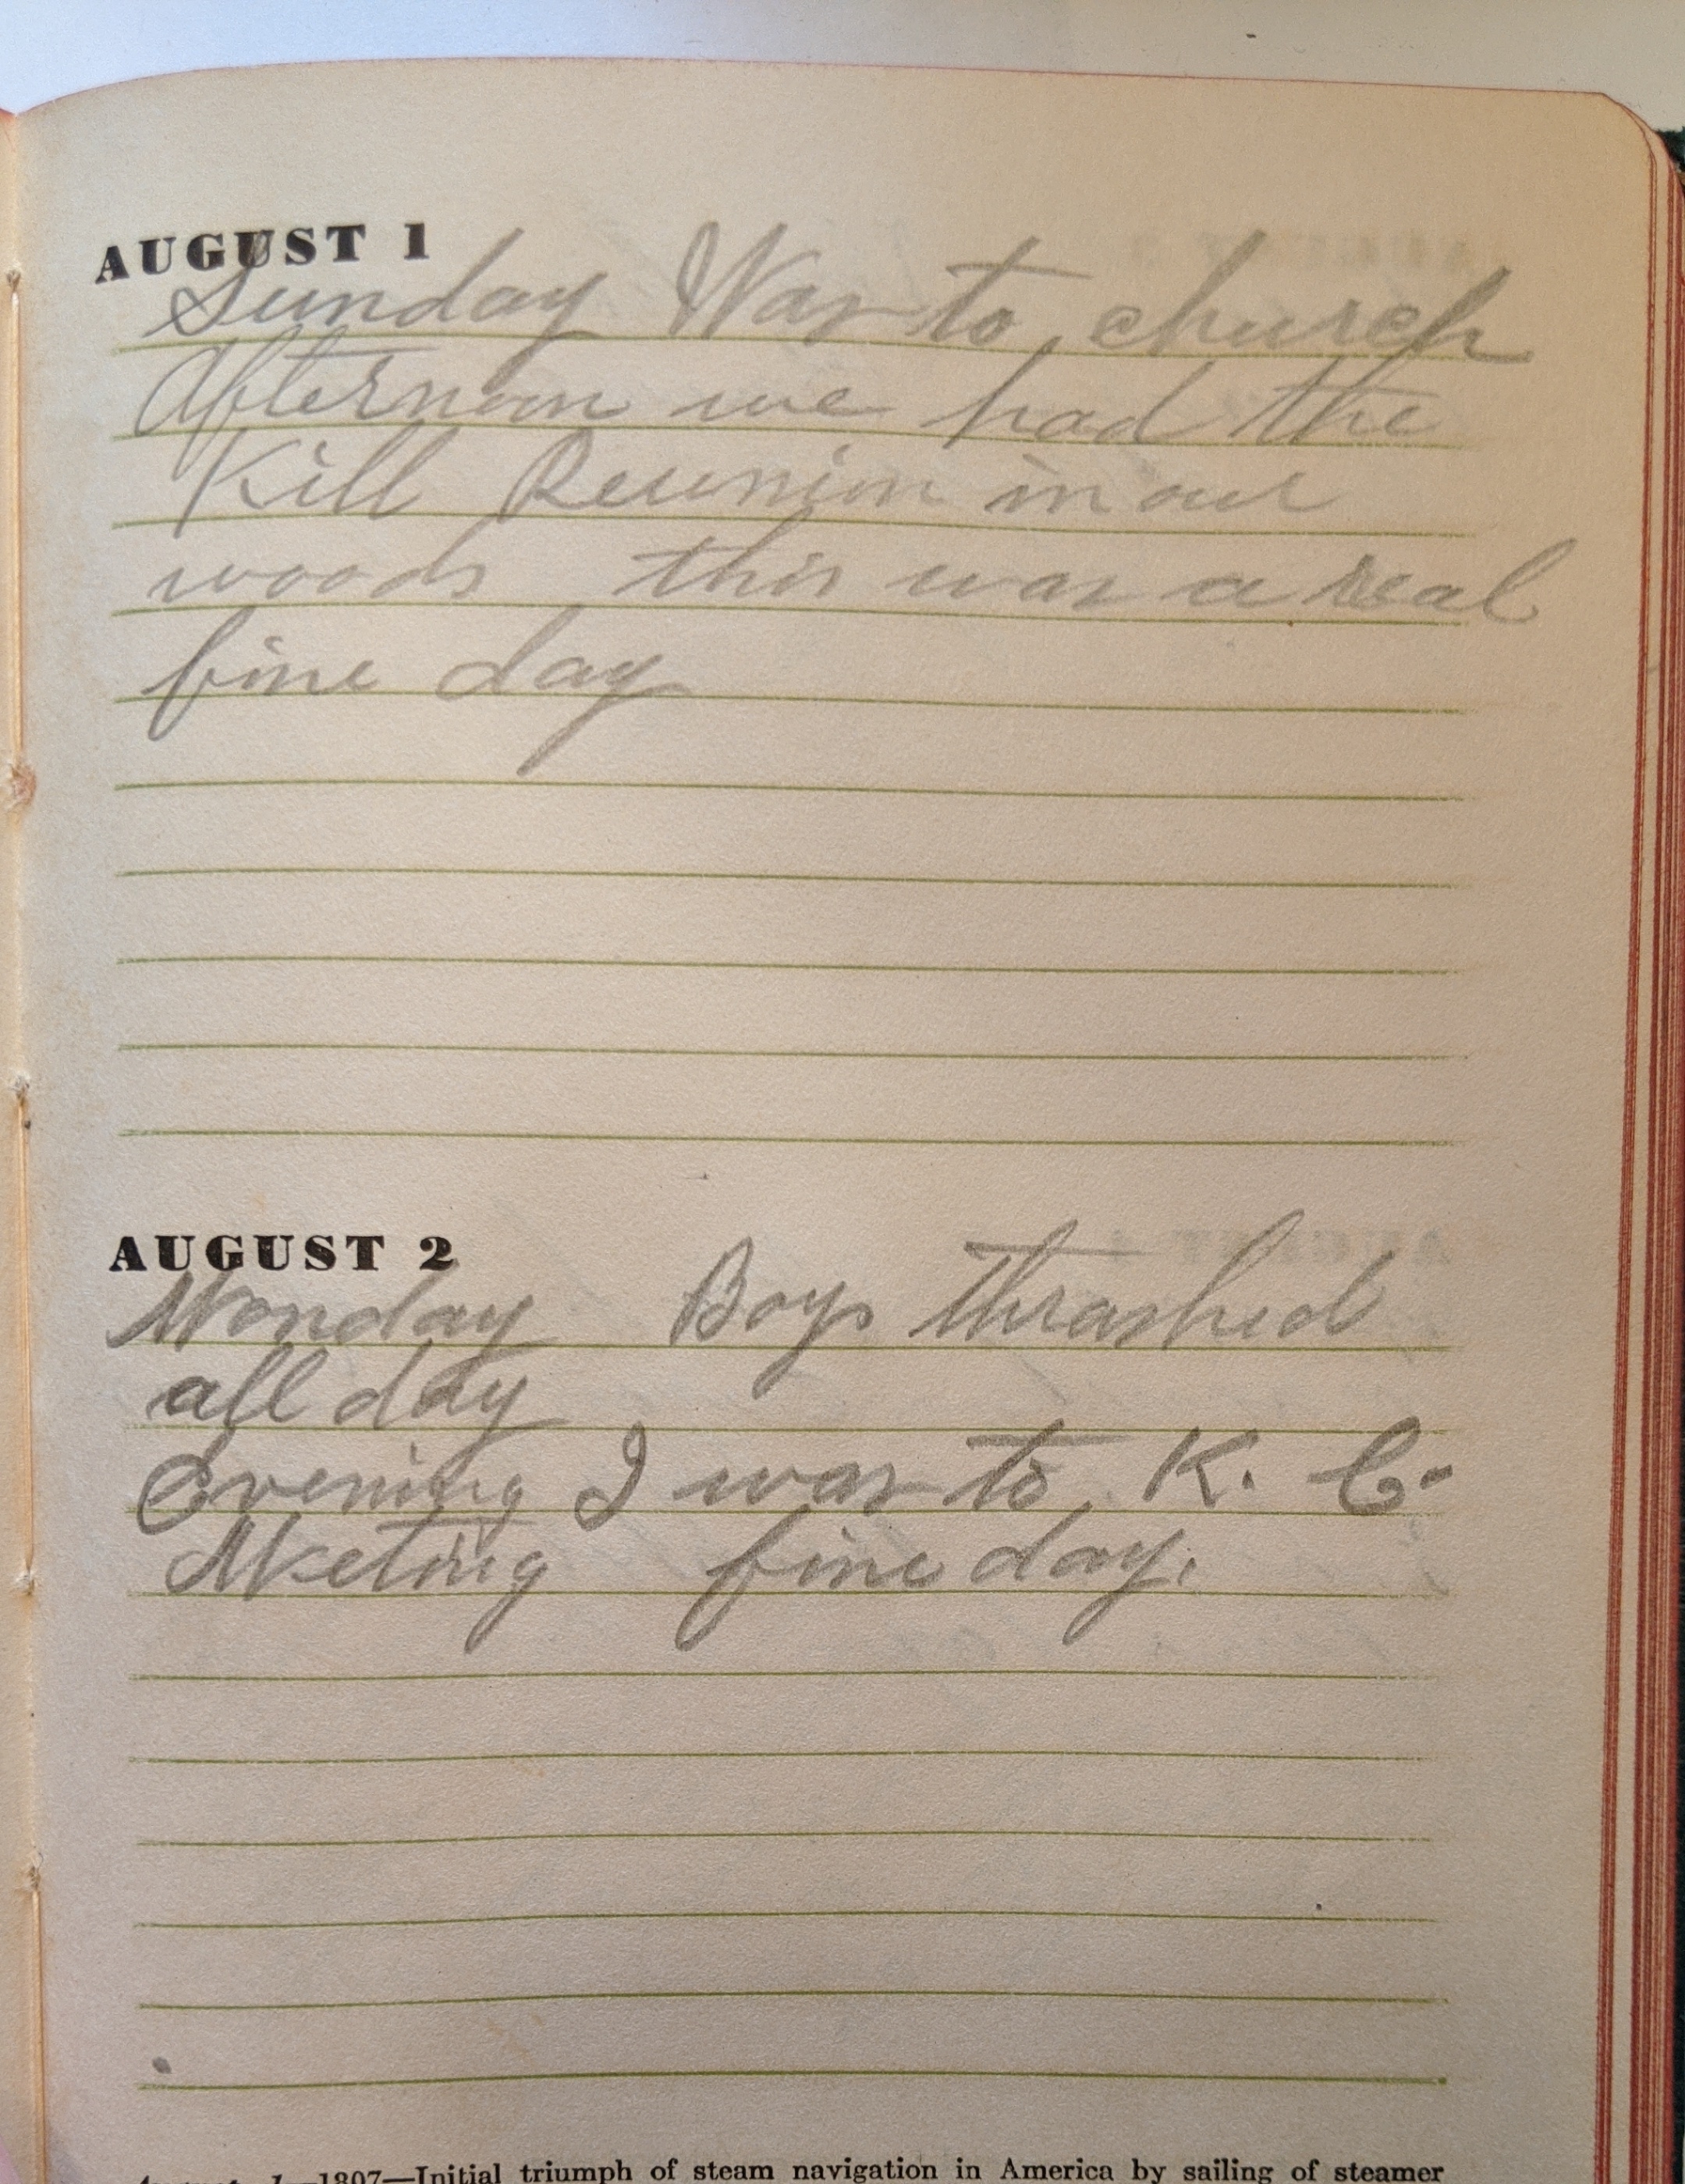 AUGUST 1
Sunday Was to church
Afternoon we had the
Kill Reunion in our
woods this was a real
fine day
AUGUST 2
Monday Boys thrashed
all day
Evening I was to K. C.
Meeting fine day.
August 1—1807—Initial triumph of steam navigation in America by sailing of steamer